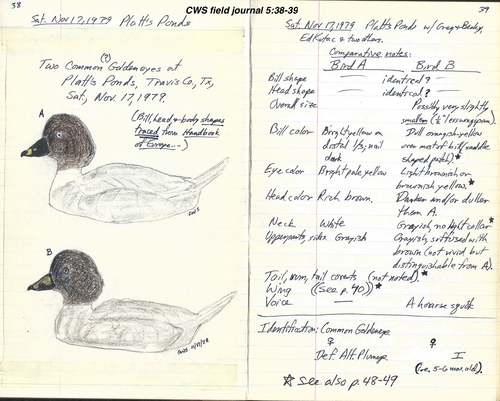 CWS field journal 5:38-39
38
Sat. Nov 17, 1979 Platt's Ponds
(?)
Two Common Goldeneyes at
Platt's Ponds, Travis Co, Tx,
Sat, Nov 17, 1979.
(Bill, head, + body shapes
traced from Handbook
of Europe...)
A
CWS
B
CWS 11/17/79
39
Sat. Nov 17, 1979 Platt's Pond w/ Greg + Becky,
Ed Kutac + two others.
Comparative notes:
Bird A Bird B
Bill shape — identical? —
Head shape — identical? —
Overall size Possibly very slightly
smaller (½" less wingspan).
Bill color Bright yellow on Dull orangish yellow
distal 1/3; nail over most of bill (saddle
dark shaped patch).*
Eye color Bright pale yellow Light brownish or
brownish yellow.*
Head color Rich brown. Darker and/or duller
than A.
Neck White Grayish, no light collar*
Upperparts, sides Grayish Grayish, suffused with
brown (not vivid but
distinguishable from A).
Tail, rum, tail coverts (not noted).*
Wing ((See p. 40))*
Voice — A hoarse squit
Identification: Common Goldeneye
♀ ♀
Def. Alt. Plumage I
(i.e. 5-6 mos. old).
* See also p. 48-49